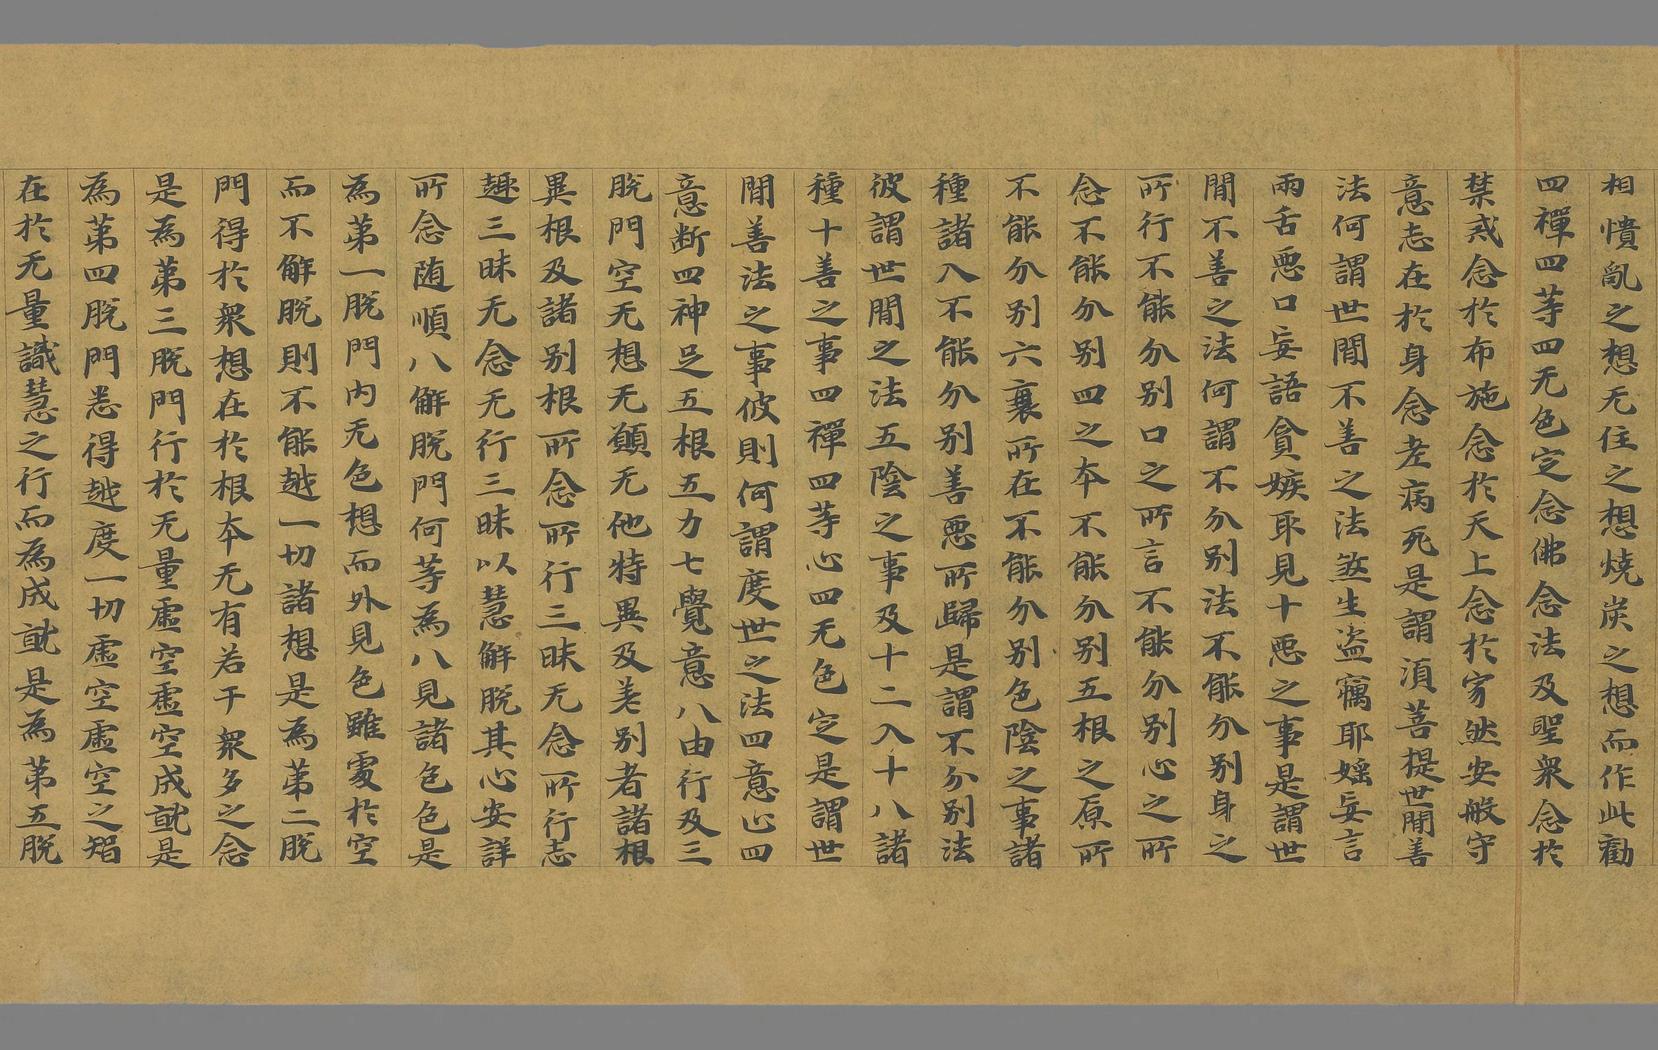 相憒亂之想无住之想燒炭之想而作此勸
四禪四等四无色定念佛念法及聖衆念於
禁戒念於布施念於天上念於家然安般守
意志在於身念老病死是謂湏菩提世間善
法何謂世間不善之法煞生盗竊耶婬妄言
兩舌惡口妄語貪嫉耶見十惡之事是謂世
間不善之法何謂不分别法不能分别身之
所行不能分别口之所言不能分别心之所
念不能分别四之本不能分别五根之原所
不能分别六衰所在不能分别色陰之事諸
種諸入不能分别善惡所歸是謂不分别法
彼謂世間之法五陰之事及十二入十八諸
種十善之事四禪四等心四无色定是謂世
間善法之事彼則何謂度世之法四意止四
意断四神足五根五力七覺意八由行及三
脱門空无想无願无他特異及差别者諸根
異根及諸别根所念所行三昧无念所行志
趣三昧无念无行三昧以慧解脱其心安詳
所念随順八解脱門何等為八見諸色色是
為第一脱門内无色想而外見色雖處於空
而不解脱則不能越一切諸想是為第二脱
門得於衆想在於根本无有若干衆多之念
是為第三脱門行於无量虚空虚空成就是
為第四脱門悉得越度一切虚空虚空之智
在於无量識慧之行而為成就是為第五脱